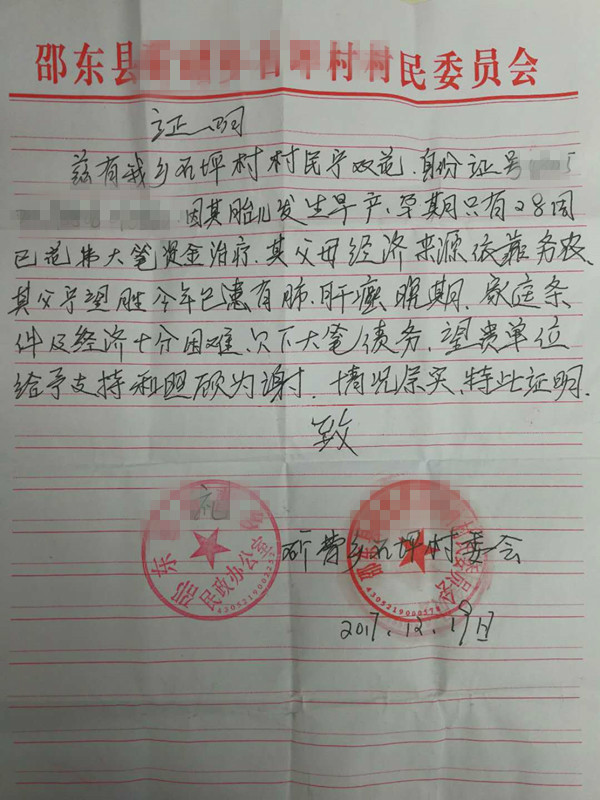 邵东县 村村民委员会
证明
兹有我乡石坪村村民宁双花.身份证号 5
因其胎儿发生早产,孕期只有28周
已花费大笔资金治疗.其父母经济来源依靠务农、
其父宁望胜今年已患有肺.肝癌晚期.家庭条
件及经济十分困难.欠下大笔债务.望贵单位
给予支持和照顾为谢!情况属实、特此证明.
致
礼
斫曹乡石坪村委会
2017.12.19日
邵东
民政办公室
邵东
员会
4305219000578